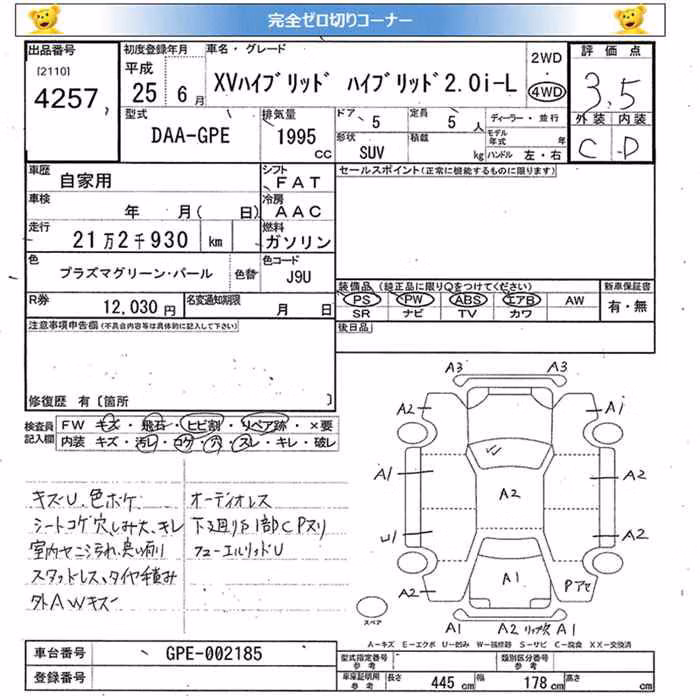 完全ゼロ切りコーナー
出品番号
[2110]
4257
初度登録年月
平成
25 6月
車名・グレード
XVハイブリッド ハイブリッド2.0i-L
2WD
4WD
評価点
3.5
外装 内装
C D
型式
DAA-GPE
排気量
1995
CC
ドア
5
定員
5 人
形状
SUV
積載
kg
ディーラー・並行
モデル年式 年
ハンドル 左・右
車歴
自家用
シフト
FAT
セールスポイント(正常に機能するものに限ります)
車検
年 月( 日)
冷房
AAC
走行
21万2千930 km
燃料
ガソリン
色
プラズマグリーン・パール
色替
色コード
J9U
装備品(純正品に限り○をつけてください)
PS PW ABS エアB AW
SR ナビ TV カワ
新車保証書
有・無
R券
12,030円
名変通知期限
月 日
後日品
注意事項申告欄(不具合内容等は具体的に記入して下さい)
修復歴 有〔箇所 〕
検査員記入欄
FW キズ・飛石・ヒビ割・リペア跡・×要
内装 キズ・汚レ・コゲ・穴・スレ・キレ・破レ
キズU、色ボケ
シートコゲ穴しみ大、キレ
室内ヤニ汚れ、臭い有り
スタッドレス、タイヤ積み
外AWキズ
オーディオレス
下廻り1部CPヌリ
フューエルリッドU
A3 A3
A2 A1
A1 A2 A2
U1 A2
A1 Pアセ
A2
A1 A2 リップ欠 A1
スペア
A-キズ E-エクボ U-凹み W-補修跡 S-サビ C-腐食 XX-交換済
車台番号
GPE-002185
登録番号
型式指定番号
参考
類別区分番号
参考
車庫証明用
参考
長さ
445 cm
幅
178 cm
高さ
cm